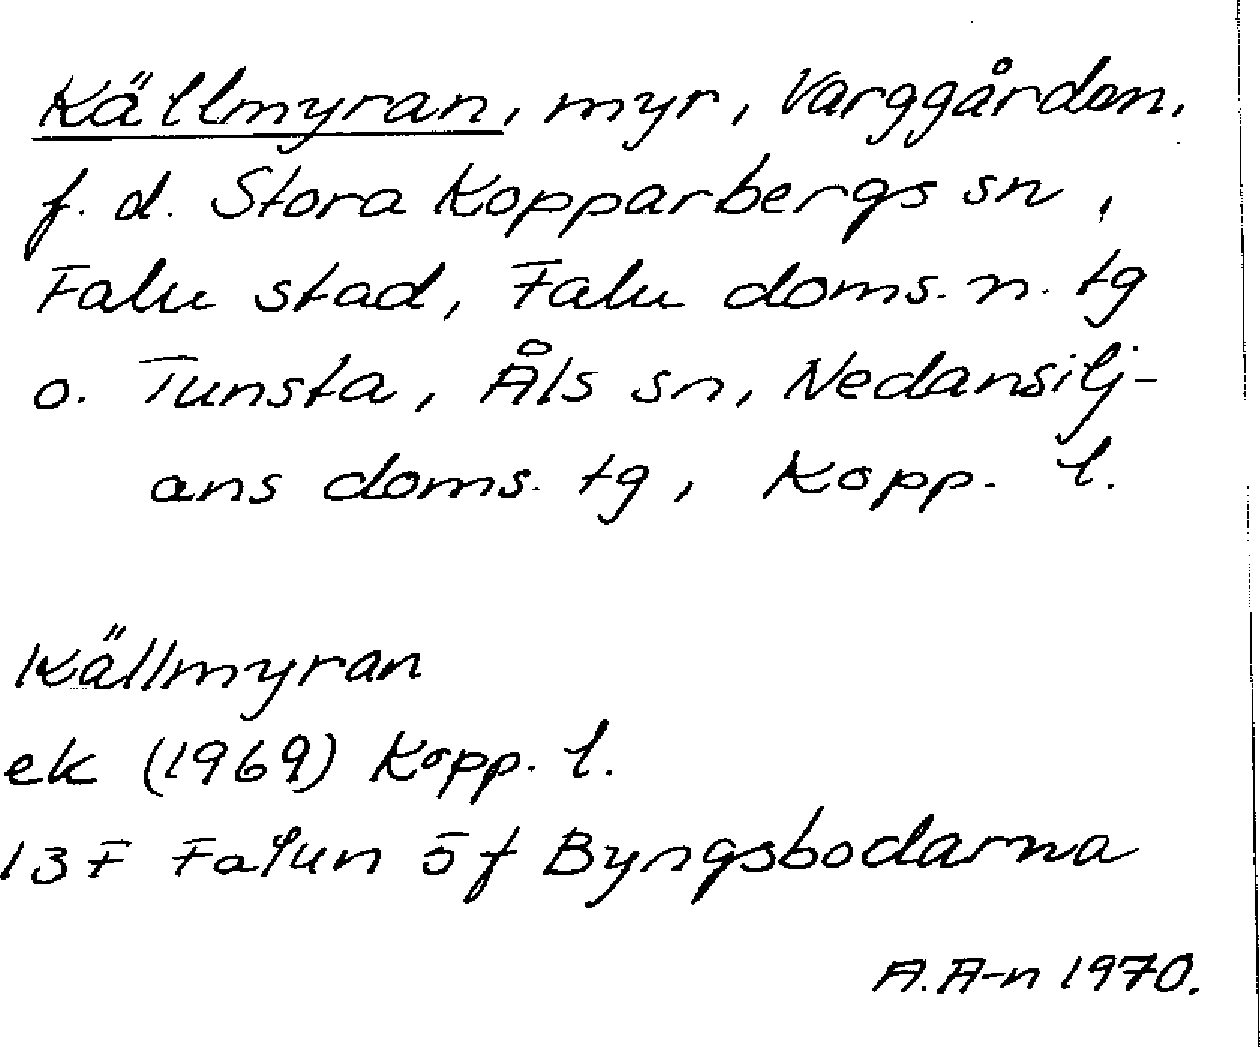 Källmyran, myr, Varggården,
f. d. Stora Kopparbergs sn,
Falu stad, Falu doms. n. tg
o. Tunsta, Åls sn, Nedansilj-
ans doms. tg, Kopp. l.
Källmyran
ek (1969) Kopp. l.
13F Falun 5f Byngsbodarna
A. A-n 1970.